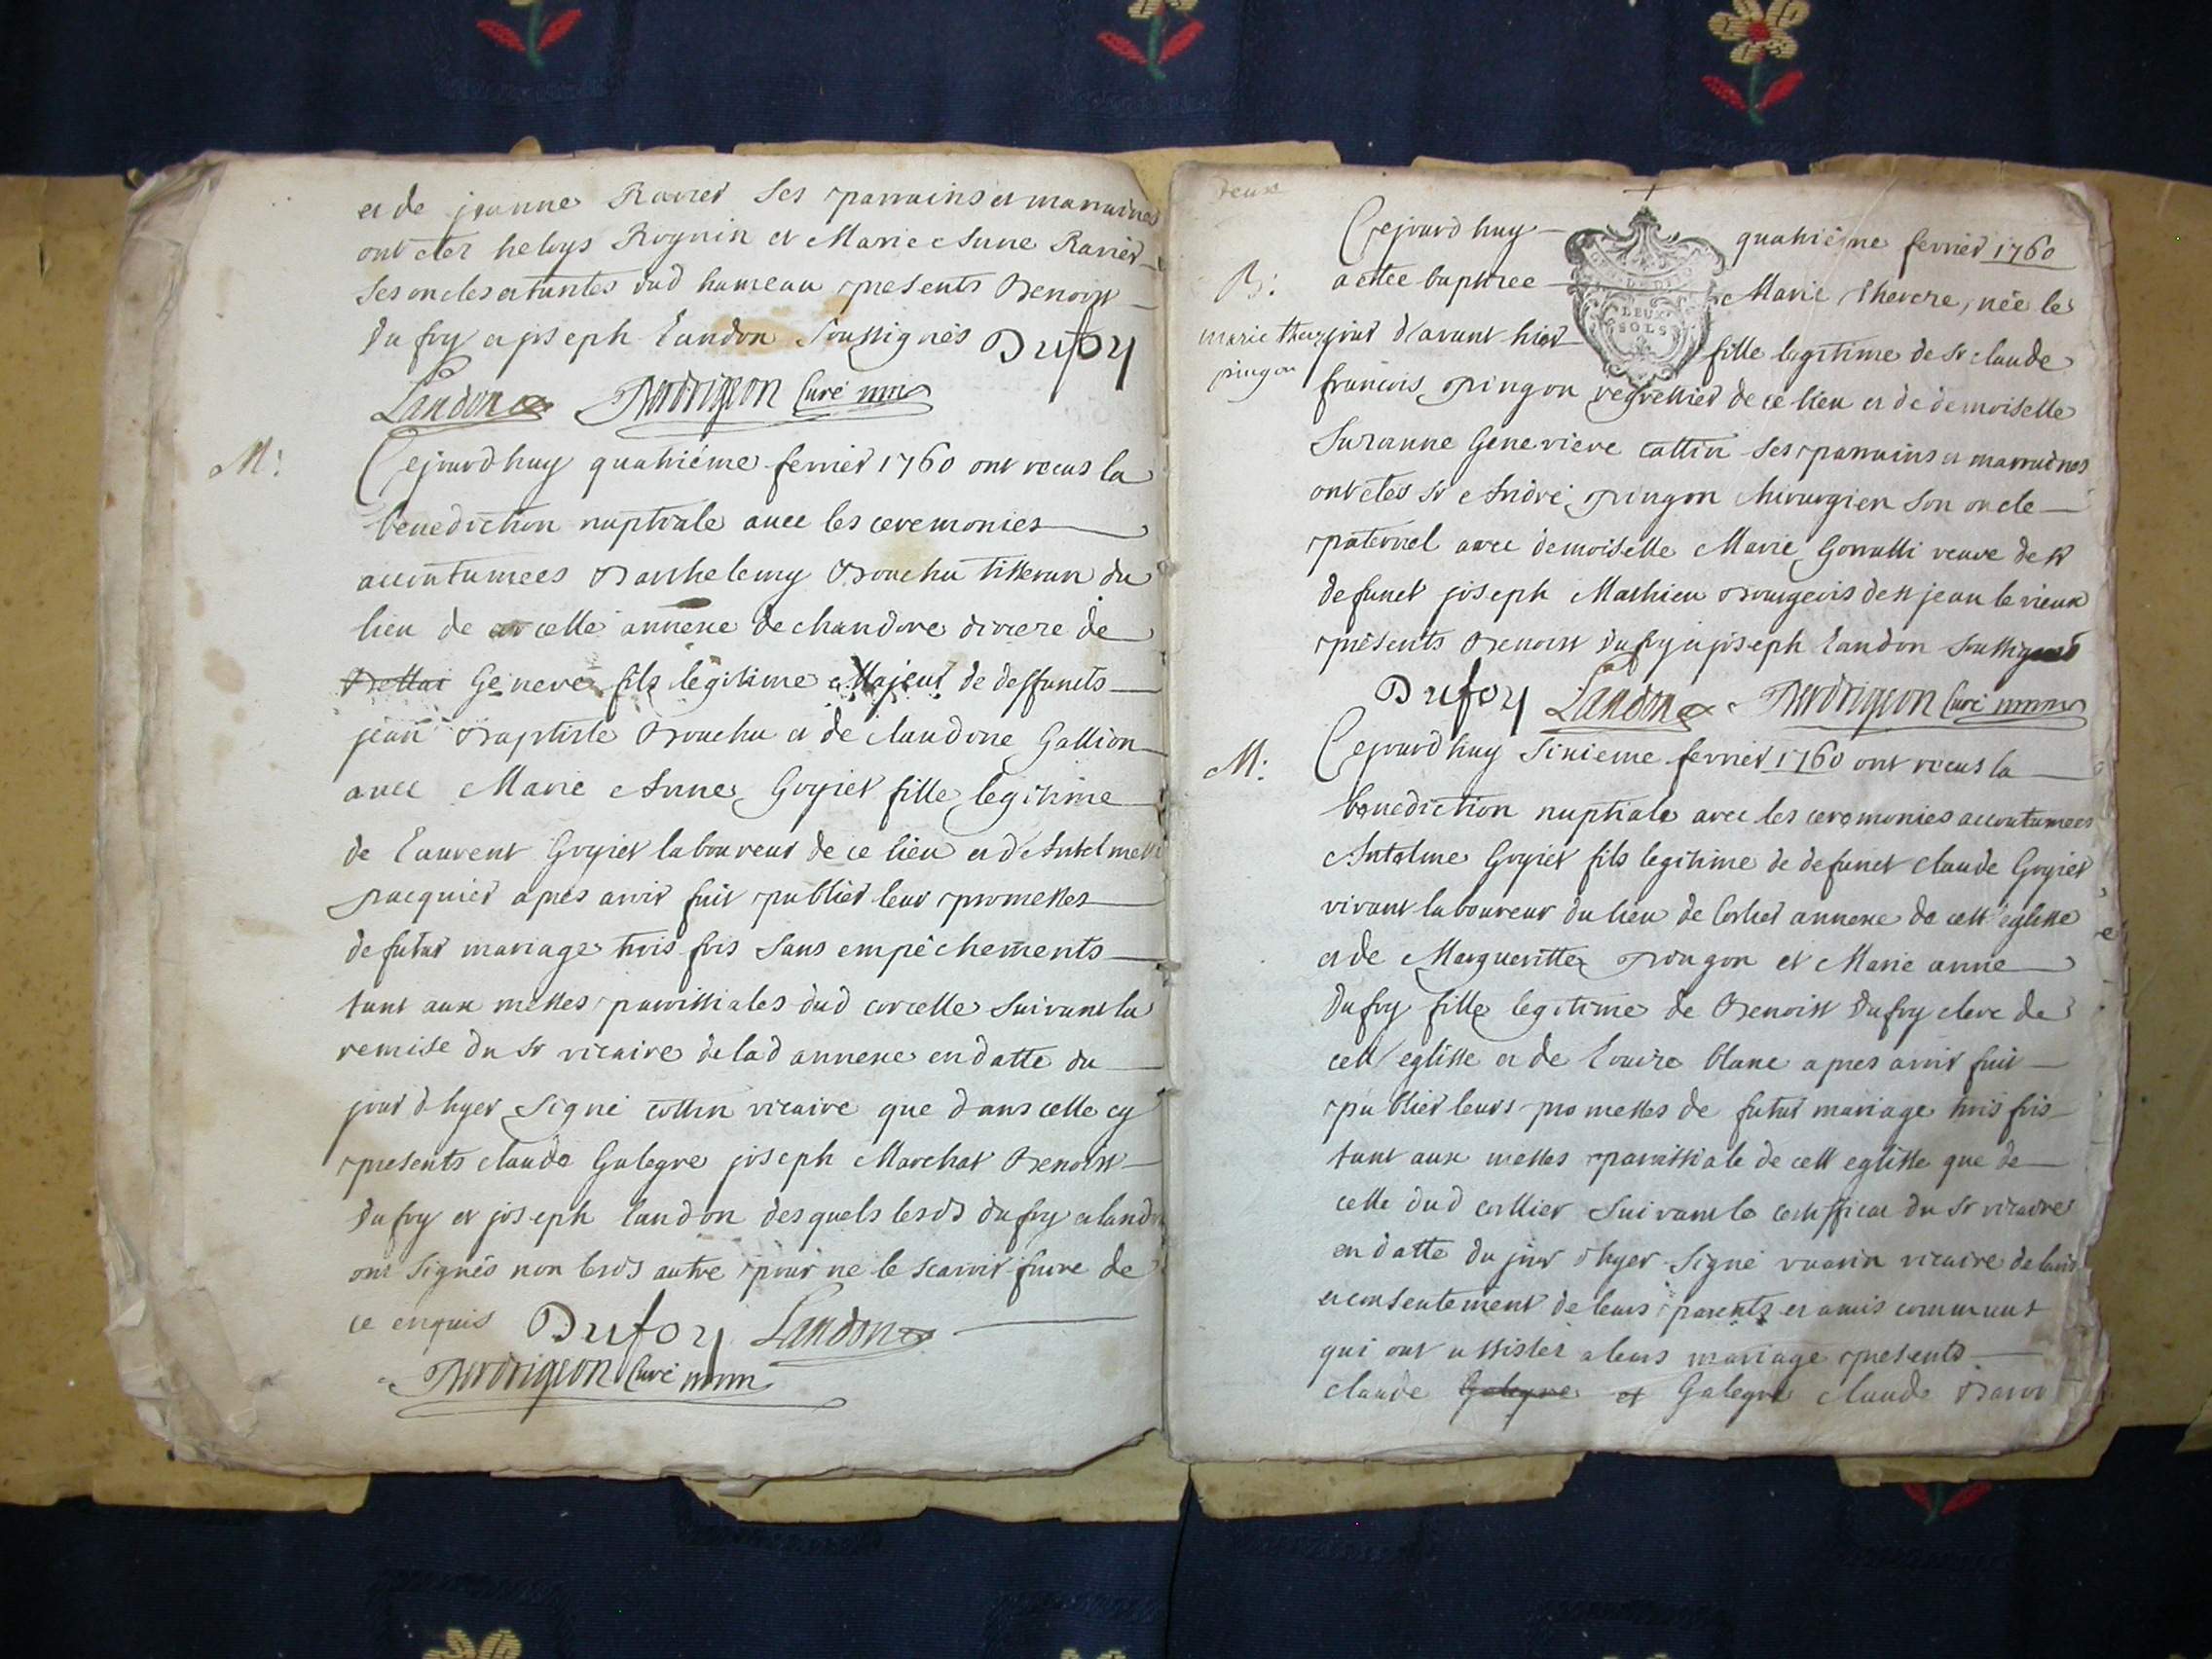 et de jeanne Ravier ses parrains et marraines
ont etez heloys Roynin et Marie Anne Ravier
ses oncles et tantes dud hameau presents Benoist
Dufoy et joseph Landon soussignés Dufoy
Landon curé
M:
Cejourd huy quatriéme fevrier 1760 ont recus la
benediction nuptiale avec les ceremonies
accoutumees Barthelemy Bouchu tisseran du
lieu de corcelle annexe de chandore diocere de
Geneve fils legitime Majeur de deffuncts
jean Baptiste Bouchu et de claudine Gallion
avec Marie Anne Goyiet fille legitime
de Laurent Goyiet laboureur de ce lieu et d'Antelmette
pacquier apres avoir fait publier leur promesses
de futur mariage trois fois sans empêchements
tant aux messes paroissiales dud corcelle suivant la
remise du sr vicaire de lad annexe en datte du
jour d hyer signé cottin vicaire que dans celle cy
presents claude Galegre joseph Marchat Benoist
Dufoy et joseph Landon desquels lesds dufoy et landon
ont signés non lesds autre pour ne le scavoir faire de
ce enquis Dufoy Landon
curé
deux
Cejourd huy quatriéme fevrier 1760
B:
a etée baptisee Marie therese, née le
DEUX
SOLS
marie therese
pingon
jour d'avant hier fille legitime de sr claude
francois pingon greffier de ce lieu et de demoiselle
Suzanne Genevieve cattin ses parrains et marraines
ont etés sr André pingon chirurgien son oncle
paternel avec demoiselle Marie veuve de sr
defunct joseph Mathieu bourgeois de st jean le vieux
présents Benoist dufoy et joseph Landon soussignés
Dufoy Landon curé
M:
Cejourd huy sixieme fevrier 1760 ont recus la
benediction nuptiale avec les ceremonies accoutumees
Antelme Goyiet fils legitime de defunct claude Goyiet
vivant laboureur du lieu de annexe de cett eglise
et de Margueritte pingon et Marie anne
Dufoy fille legitime de Benoist Dufoy clerc de
cett eglise et de Louise blanc apres avoir fait
publier leurs promesses de futur mariage trois fois
tant aux messes paroissiale de cett eglise que de
celle dud suivant le certifficat du sr vicaire
en datte du jour d hyer signé vuarin vicaire de
et consentement de leurs parents et amis communs
qui ont assister a leurs mariage presents
claude Galegre et Galegre claude